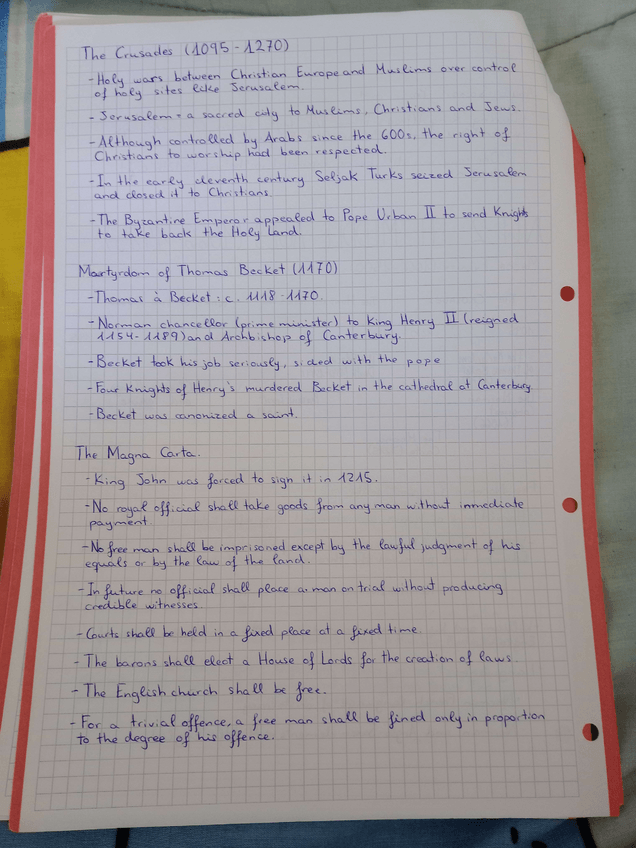 The Crusades (1095 - 1270)
- Holy wars between Christian Europe and Muslims over control
of holy sites like Jerusalem.
- Jerusalem = a sacred city to Muslims, Christians and Jews.
- Although controlled by Arabs since the 600s, the right of
Christians to worship had been respected.
- In the early eleventh century Seljak Turks seized Jerusalem
and closed it to Christians.
- The Byzantine Emperor appealed to Pope Urban II to send Knights
to take back the Holy Land.
Martyrdom of Thomas Becket (1170)
- Thomas à Becket : c. 1118 - 1170.
- Norman chancellor (prime minister) to King Henry II (reigned
1154 - 1189) and Archbishop of Canterbury.
- Becket took his job seriously, sided with the pope
- Four Knights of Henry's murdered Becket in the cathedral at Canterbury.
- Becket was canonized a saint.
The Magna Carta.
- King John was forced to sign it in 1215.
- No royal official shall take goods from any man without inmediate
payment.
- No free man shall be imprisoned except by the lawful judgment of his
equals or by the law of the land.
- In future no official shall place a man on trial without producing
credible witnesses.
- Courts shall be held in a fixed place at a fixed time.
- The barons shall elect a House of Lords for the creation of laws
- The English church shall be free.
- For a trivial offence, a free man shall be fined only in proportion
to the degree of his offence.